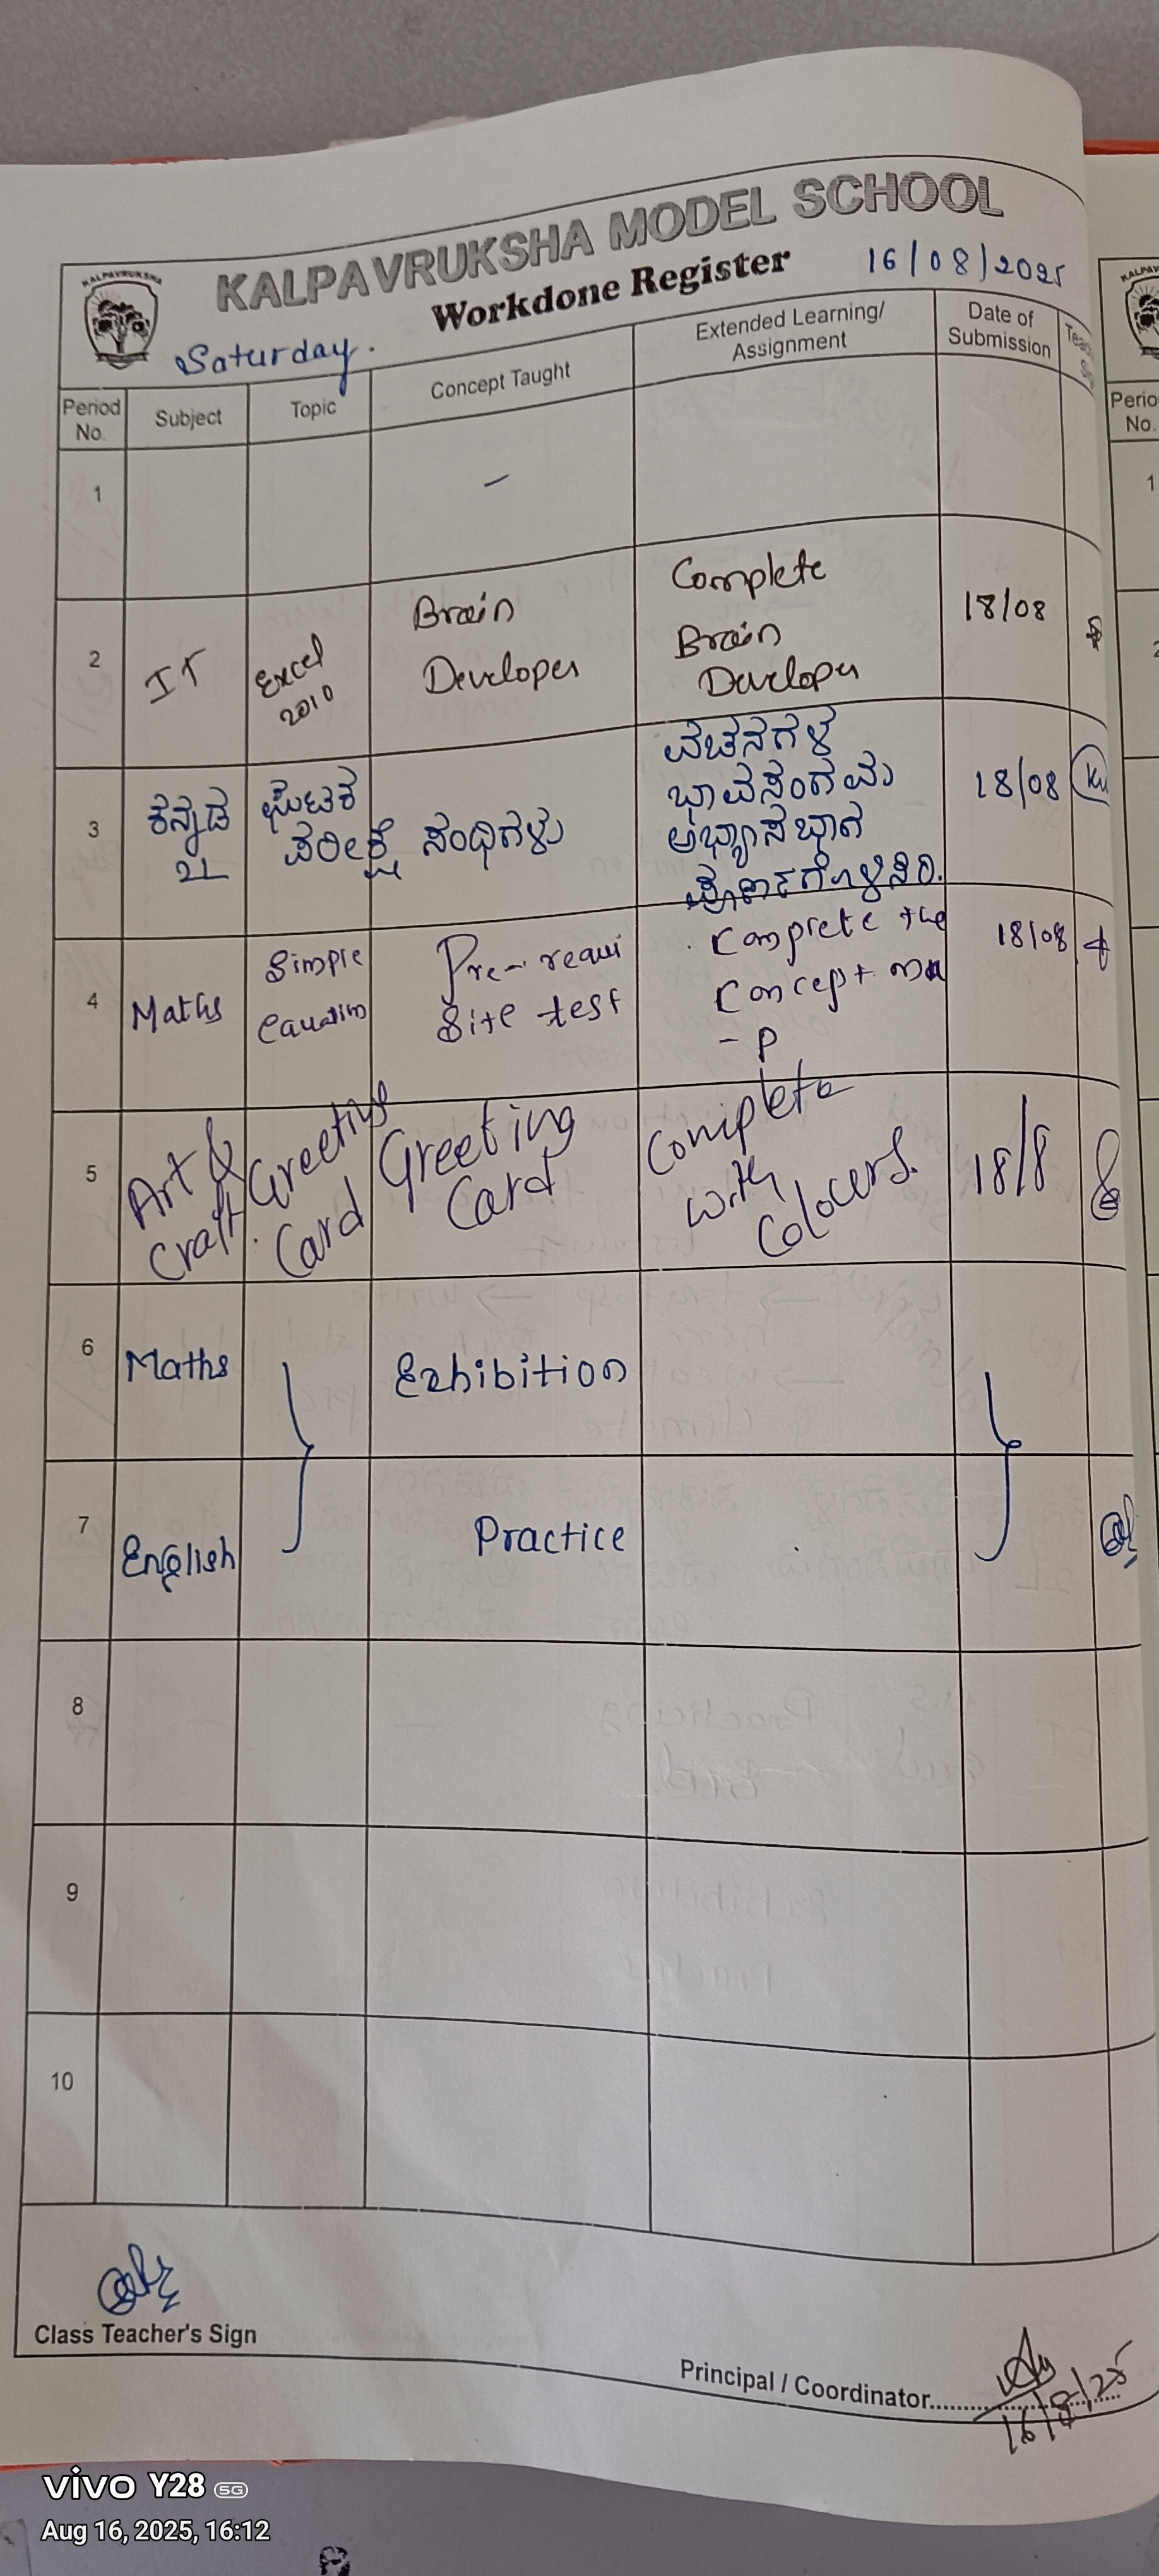 KALPAVRUKSHA
KALPAVRUKSHA MODEL SCHOOL
Workdone Register
16/08/2025
Saturday.
Period No.
Subject
Topic
Concept Taught
Extended Learning/
Assignment
Date of
Submission
1
-
2
IT
Excel
2010
Brain
Developer
Complete
Brain
Developer
18/08
3
ಕನ್ನಡ
2L
ಘಟಕ
ಪರೀಕ್ಷೆ
ಸಂಧಿಗಳು
ವಚನಗಳ
ಭಾವಸಂಗಮ
ಅಭ್ಯಾಸ ಭಾಗ
18/08
4
Maths
Simple
Equation
Pre-requi
site test
Complete the
Concept ma
- P
18/08
5
Art &
Craft.
Greeting
Card
Greeting
Card
Complete
with
Colours.
18/8
6
Maths
Exhibition
7
English
Practice
8
9
10
Class Teacher's Sign
Principal / Coordinator
16/8/25
Perio
No.
1
2
vivo Y28 5G
Aug 16, 2025, 16:12